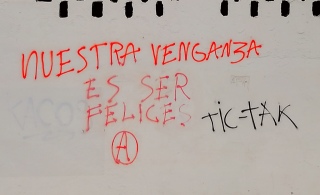 NUESTRA VENGANZA
ES SER
FELICES
TIC-TAK
A